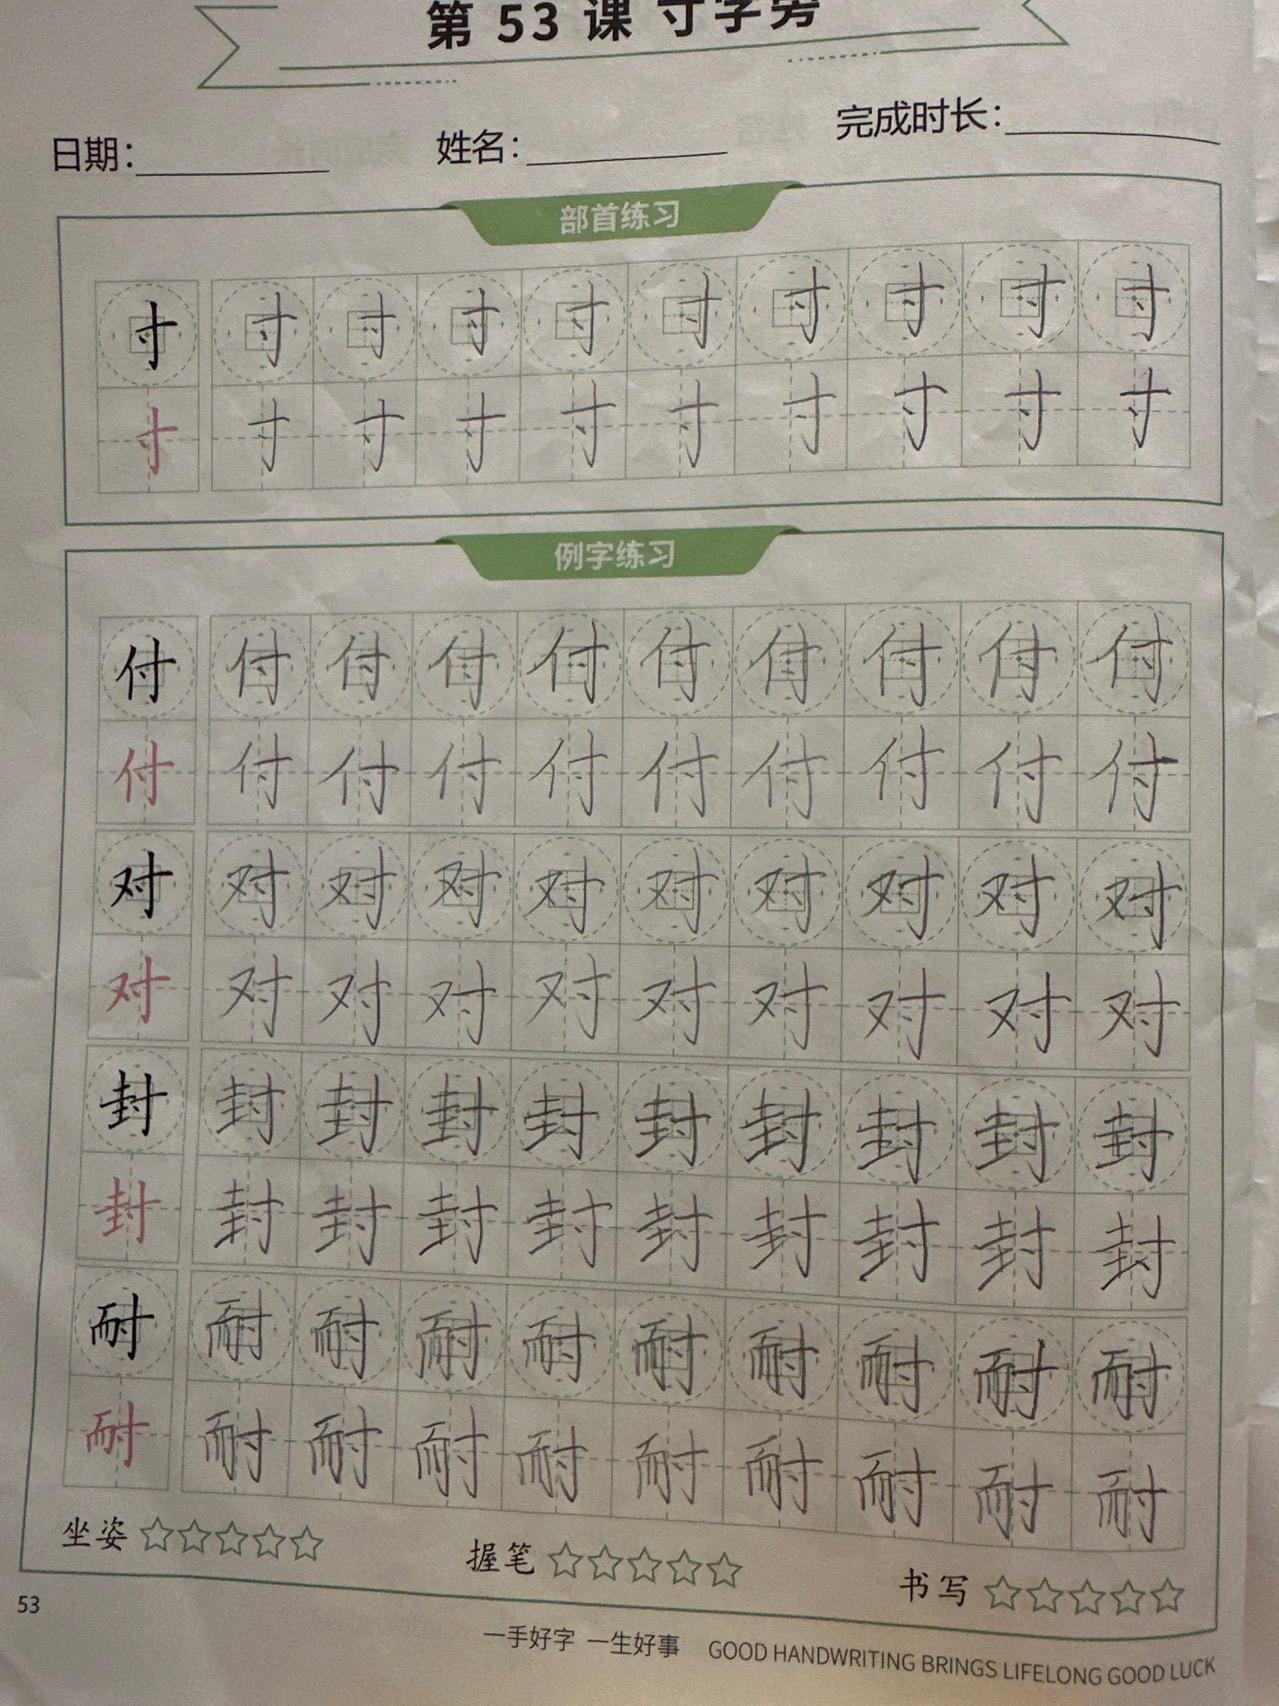 第 53 课 寸字旁
日期： 姓名： 完成时长：
部首练习
寸 寸 寸 寸 寸 寸 寸 寸 寸 寸
寸 寸 寸 寸 寸 寸 寸 寸 寸 寸
例字练习
付 付 付 付 付 付 付 付 付 付
付 付 付 付 付 付 付 付 付 付
对 对 对 对 对 对 对 对 对 对
对 对 对 对 对 对 对 对 对 对
封 封 封 封 封 封 封 封 封 封
封 封 封 封 封 封 封 封 封 封
耐 耐 耐 耐 耐 耐 耐 耐 耐 耐
耐 耐 耐 耐 耐 耐 耐 耐 耐 耐
坐姿 ☆☆☆☆☆ 握笔 ☆☆☆☆☆ 书写 ☆☆☆☆☆
53
一手好字 一生好事 GOOD HANDWRITING BRINGS LIFELONG GOOD LUCK